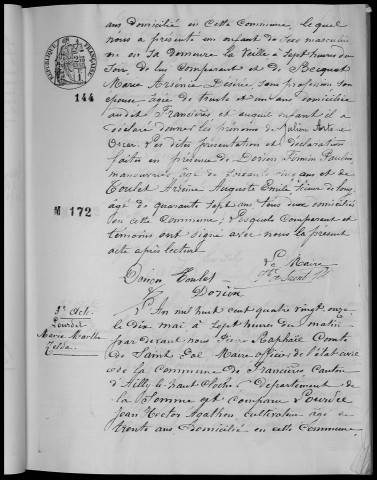 RÉPUBLIQUE FRANÇAISE
144
M 172
ans domicilié en cette Commune, lequel
nous a présenté un enfant de sexe masculin
né en sa demeure la veille à sept heures du
soir, de lui comparant et de Becquet
Marie Arsénie Désirée, sans profession son
épouse âgée de trente et un ans domiciliée
audit Francières et auquel enfant il a
déclaré donner les prénoms de Julien
Oscar. Les dites présentation et déclaration
faites en présence de Dorion Firmin Paulin
manouvrier, âgé de soixante cinq ans et de
Toulet Arsène Auguste Emile,
âgé de quarante sept ans tous deux domiciliés
en cette Commune; Lesquels comparant et
témoins ont signé avec nous le présent
acte après lecture.
Le Maire
Toulet
Dorion
Acte
Lourdel
Marie Marthe
Zelda
L'an mil huit cent quatre vingt onze
le dix mai à sept heures du matin
par devant nous Pierre Raphaël Comte
de Saint Pol Maire officier de l'état civil
de la Commune de Francières, Canton
d'Ailly le haut Clocher Département de
la Somme est comparu Lourdel
Jean Hector Agathon, cultivateur âgé de
trente ans, domicilié en cette Commune,